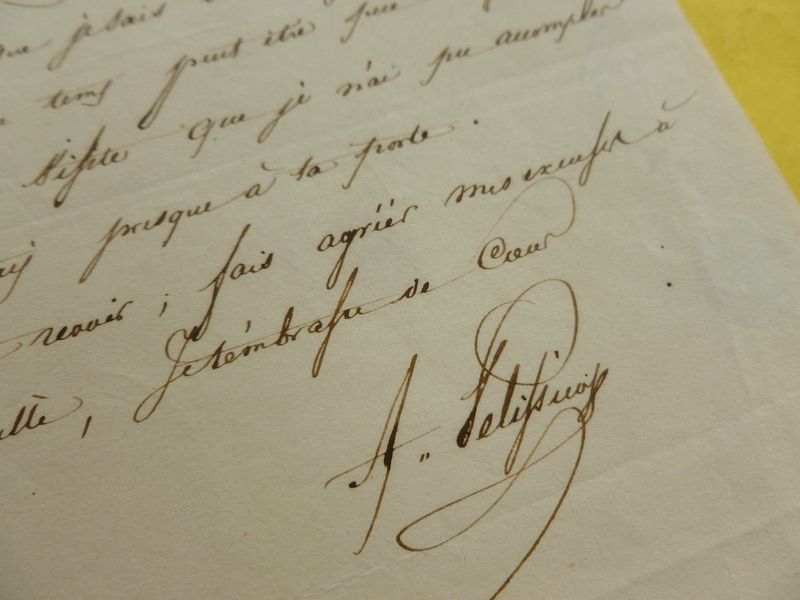 que je sais
tems peut être que
visite que je n'ai pu accomplir
presque à ta porte.
revoir ; fais agriér mes excuses à
, Je t'émbrasse de Cœur
A. Pelissier